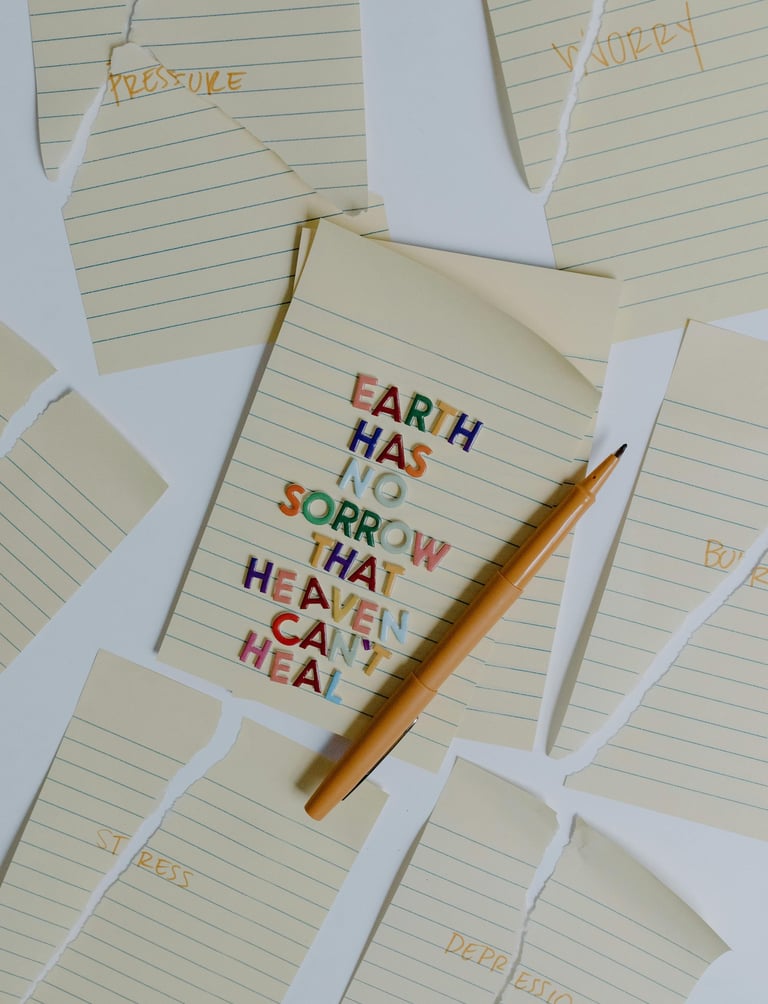 PRESSURE
WORRY
EARTH
HAS
NO
SORROW
THAT
HEAVEN
CAN'T
HEAL
STRESS
DEPRESSION